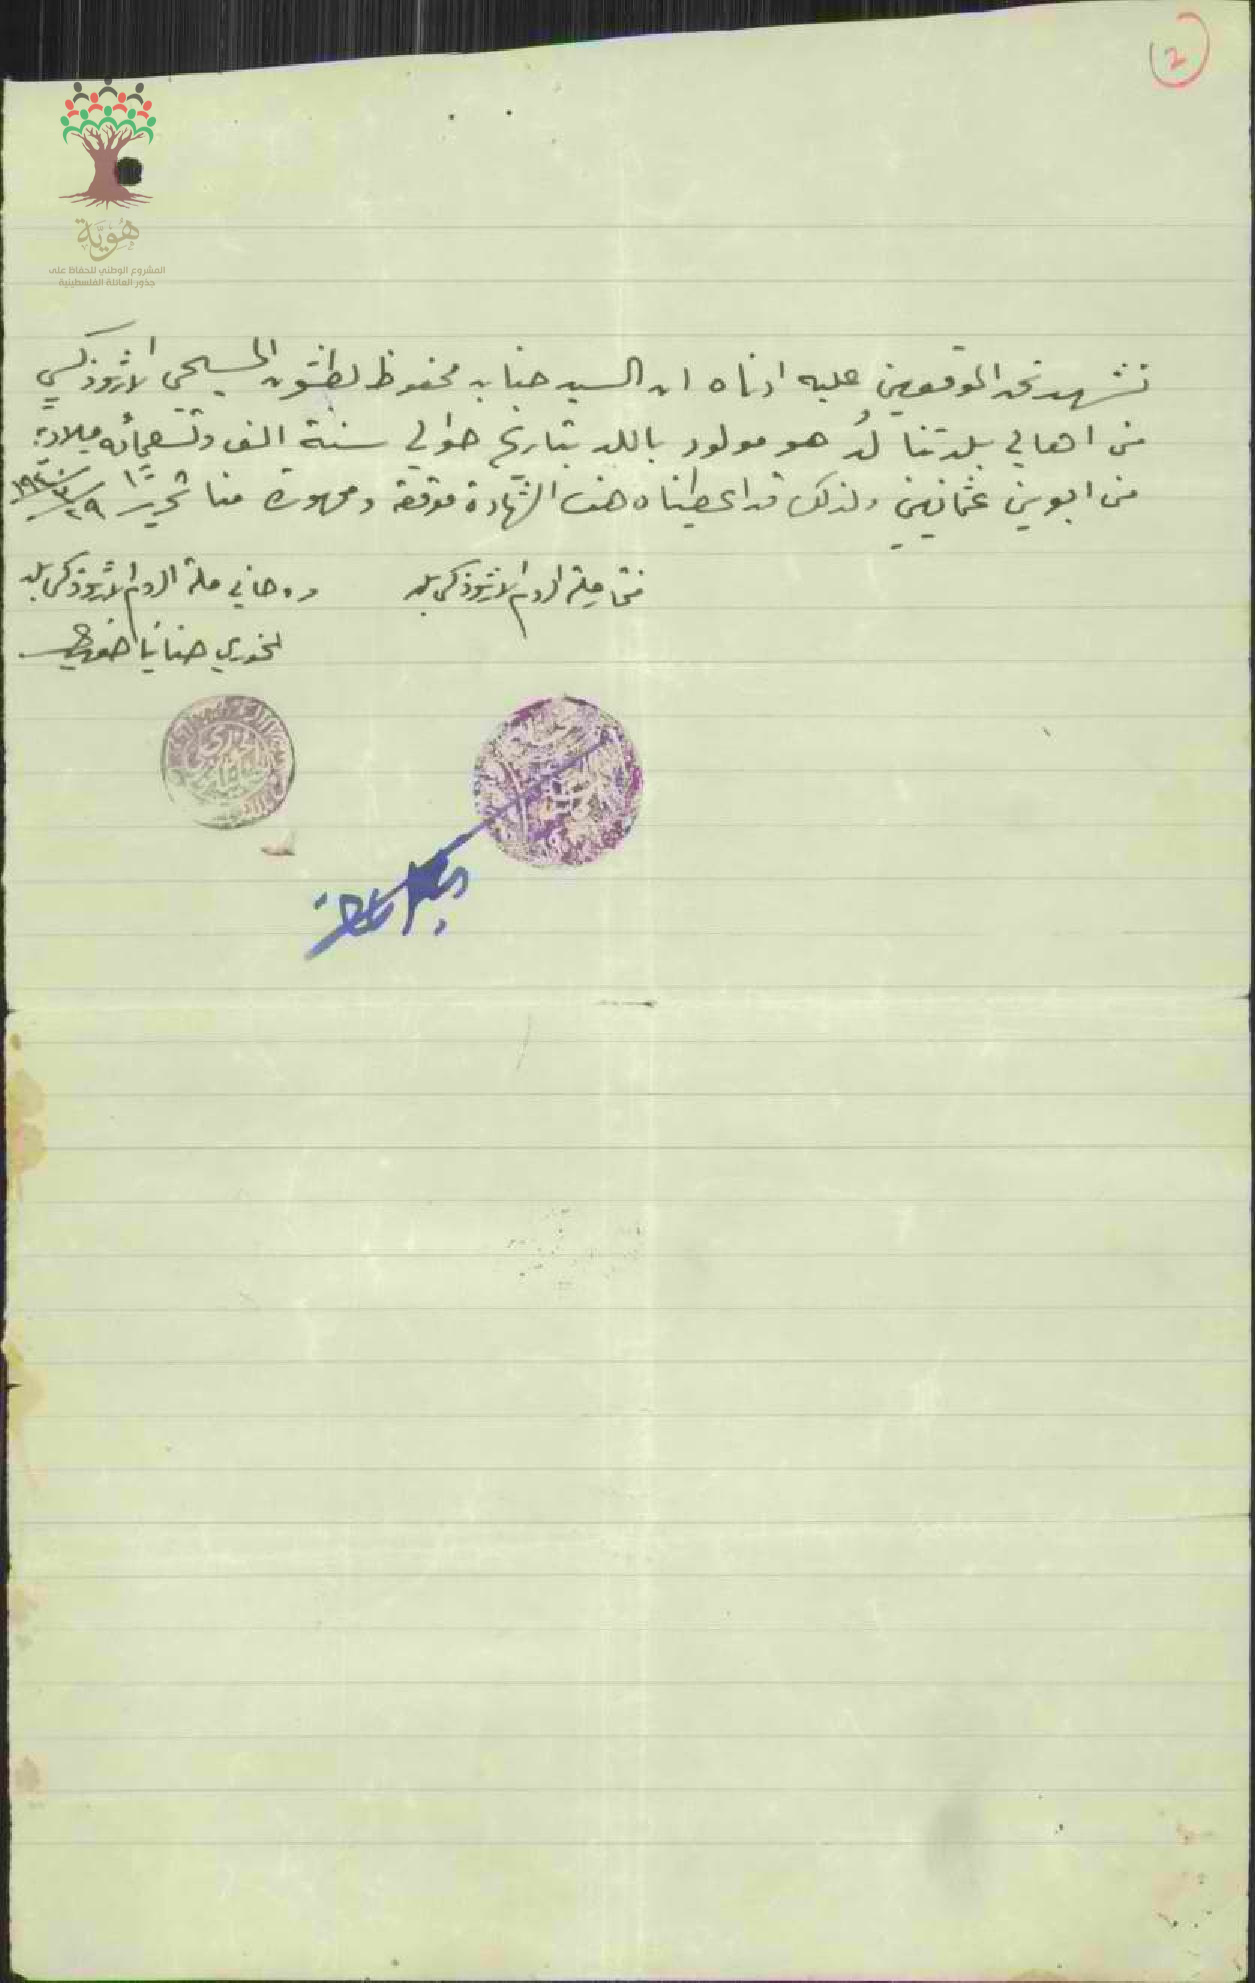 2
هُوِيَّة
المشروع الوطني للحفاظ على
جذور العائلة الفلسطينية
نشهد نحن الموقعين عليه ادناه ان السيد حنا بن محفوظ لطشون المسيحي الارثوذكسي
من اهالي بلدتنا لُد هو مولود باللد بتاريخ حوالي سنة الف وتسعمائه ميلاديةً
من ابوين عثمانيين ولذلك قد اعطيناه هذه الشهادة موقعة وممهورة منا تحريرًا
مختار ملة الروم الارثوذكس بلد
روحاني ملة الروم الارثوذكس بلد
الخوري حنانيا